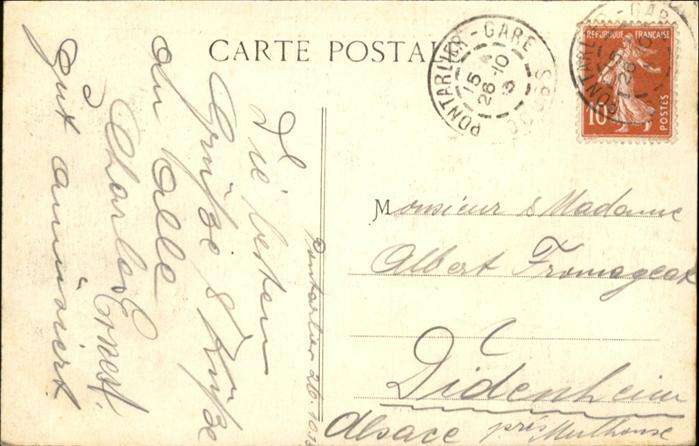 CARTE POSTALE
PONTARLIER-GARE
15
26-10
DOUBS
REPUBLIQUE FRANÇAISE
10
POSTES
Pontarlier 26.10.
Die besten
Grüße & Küße
an alle
Charles Ernest.
Gut amüsiert.
Monsieur & Madame
Albert Fromageat
Didenheim
près Mulhouse
Alsace